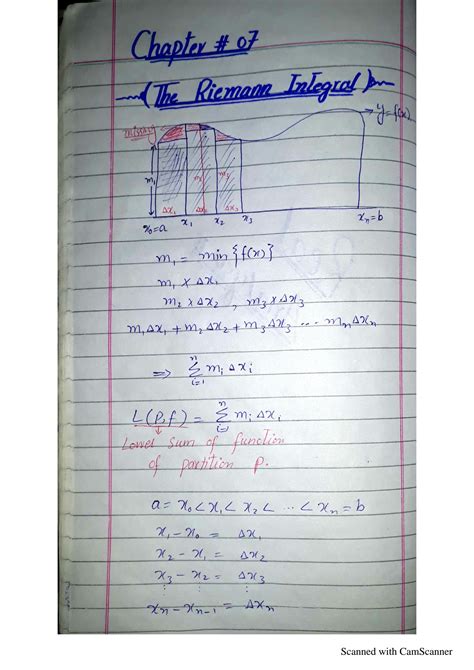 Chapter # 07
(The Riemann Integral)
missing
y=f(x)
m₁ m₂ m₃
Δx₁ Δx₂ Δx₃
x₀=a x₁ x₂ x₃ xₙ=b
m₁ = min {f(x)}
m₁ × Δx₁
m₂ × Δx₂ , m₃ × Δx₃
m₁Δx₁ + m₂Δx₂ + m₃Δx₃ ... mₙΔxₙ
⇒ ∑ⁿᵢ₌₁ mᵢ Δxᵢ
L(P,f) = ∑ⁿᵢ₌₁ mᵢ Δxᵢ
Lower Sum of function
of partition P.
a = x₀ < x₁ < x₂ < ... < xₙ = b
x₁ - x₀ = Δx₁
x₂ - x₁ = Δx₂
x₃ - x₂ = Δx₃
⋮ ⋮ ⋮
xₙ - xₙ₋₁ = Δxₙ
Scanned with CamScanner